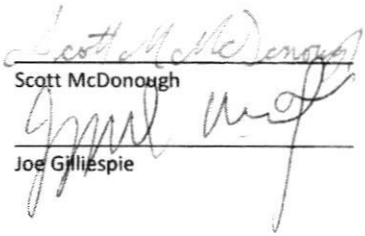 Scott M McDonough
Scott McDonough
Joe Gilliespie